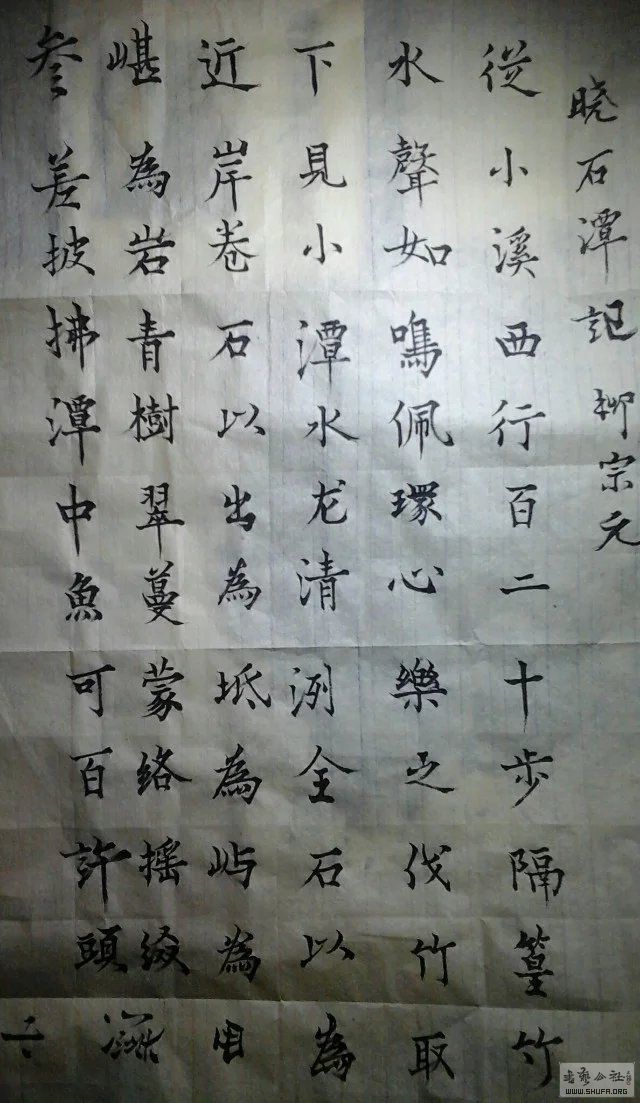 晓石潭記 柳宗元
從小溪西行百二十步隔篁竹
水聲如鳴佩環心樂之伐竹取
下見小潭水龙清洌全石以為
近岸卷石以出為坻為屿為
嵁為岩青樹翠蔓蒙络摇缀
参差披拂潭中魚可百許頭
WWW.SHUFA.ORG